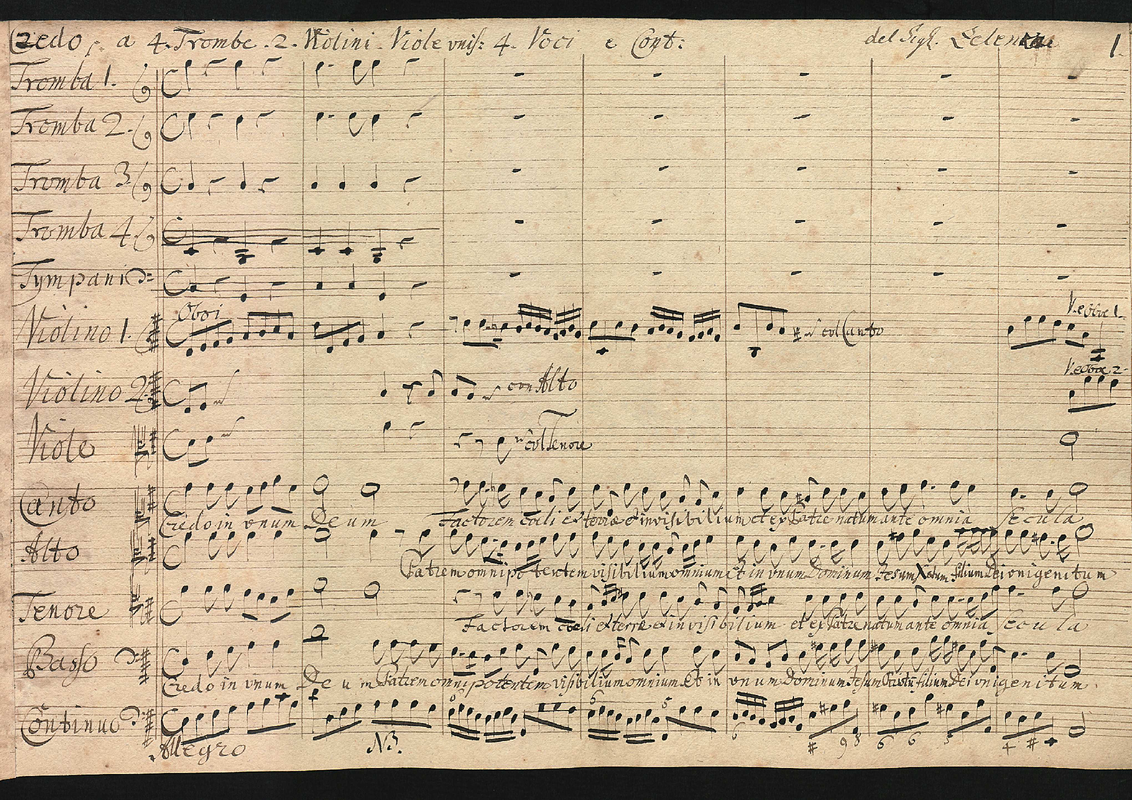 Credo, a 4. Trombe. 2. Violini Viole unis: 4. Voci e Cont: del Sigl. 1.
Tromba 1.
Tromba 2.
Tromba 3.
Tromba 4.
Tympani
Oboi
Violino 1. col Canto V. e oboe 1.
Violino 2. con Alto V. e oboe 2.
Viole col Tenore
Canto
Credo in unum Deum factorem cœli et terræ et invisibilium et ex Patre natum ante omnia secula
Alto
Patrem omnipotentem visibilium omnium et in unum Dominum Jesum filium Dei unigenitum
Tenore
factorem cœli et terræ et invisibilium et ex Patre natum ante omnia secula
Basso
Credo in unum Deum Patrem omnipotentem visibilium omnium et in unum Dominum Jesum filium Dei unigenitum.
Continuo
Allegro